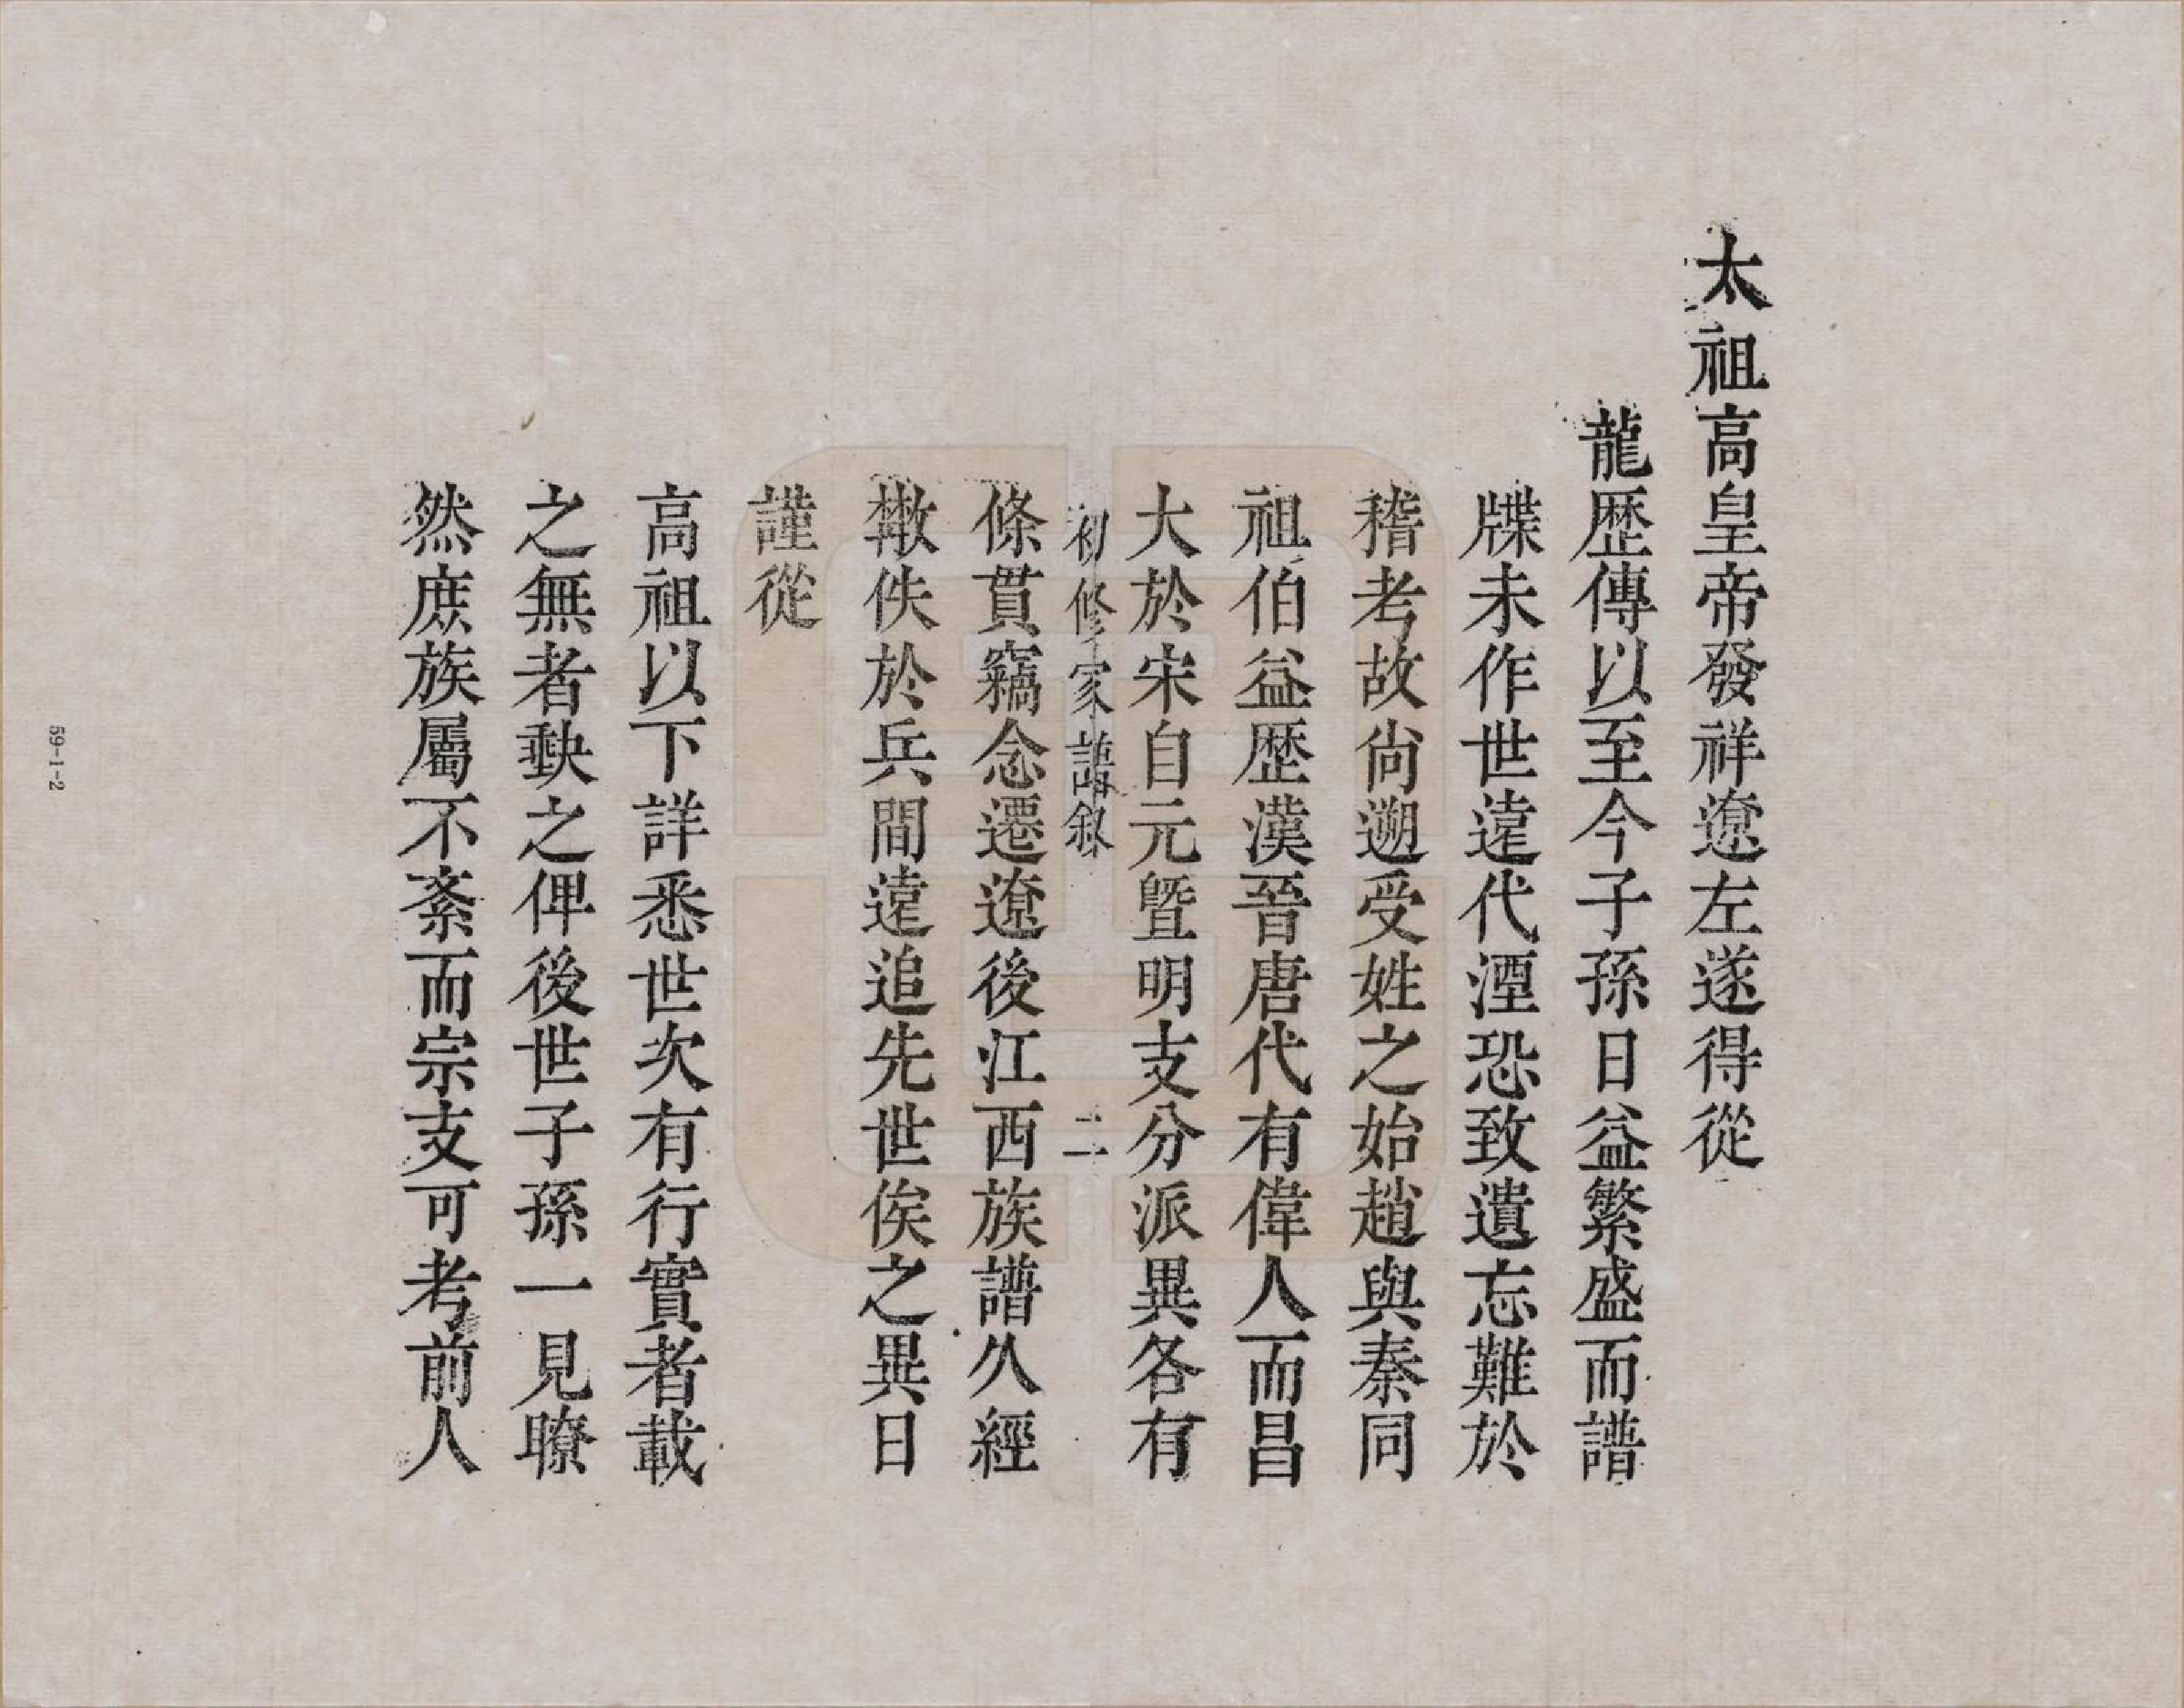 太祖高皇帝發祥遼左遂得從
龍歴傳以至今子孫日益繁盛而譜
牒未作世遠代湮恐致遺忘難於
稽考故尙遡受姓之始趙與秦同
祖伯益歴漢晉唐代有偉人而昌
大於宋自元曁明支分派異各有
初修家譜叙 二
條貫竊念遷遼後江西族譜久經
散佚於兵間遠追先世俟之異日
謹從
高祖以下詳悉世次有行實者載
之無者缺之俾後世子孫一見瞭
然庶族屬不紊而宗支可考前人
59-1-2